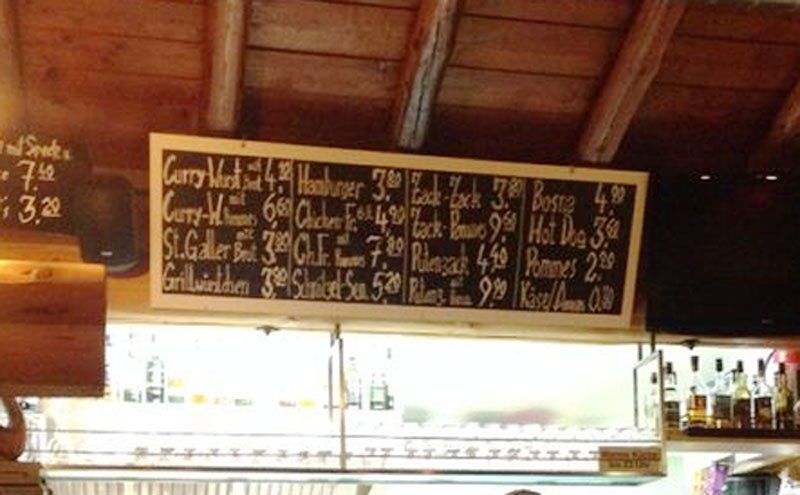 mit Speck
7.40
3.20
Curry Wurst mit Brot 4.
Curry-W. mit Pommes 6.60
St. Galler mit Brot 3.80
Grillwürstchen 3.80
Hamburger 3.80
Chicken F. 6 St. 4.90
Ch. Fr. mit Pommes 7.80
Schnitzel-Sem. 5.20
Zack-Zack 3.80
Zack-Pommes 9.60
Putenzack 4.40
Putenz. mit 9.90
Bosna 4.90
Hot Dog 3.60
Pommes 2.80
Käse/ 0.80